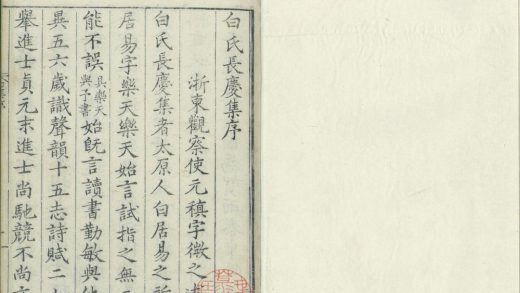 白氏長慶集序
浙東觀察使元稹字微之
白氏長慶集者太原人白居易之所
居易字樂天樂天始言試指之無二
能不誤具樂天與予書始旣言讀書勤敏與他
異五六歲識聲韻十五志詩賦二
舉進士貞元末進士尚馳競不尚